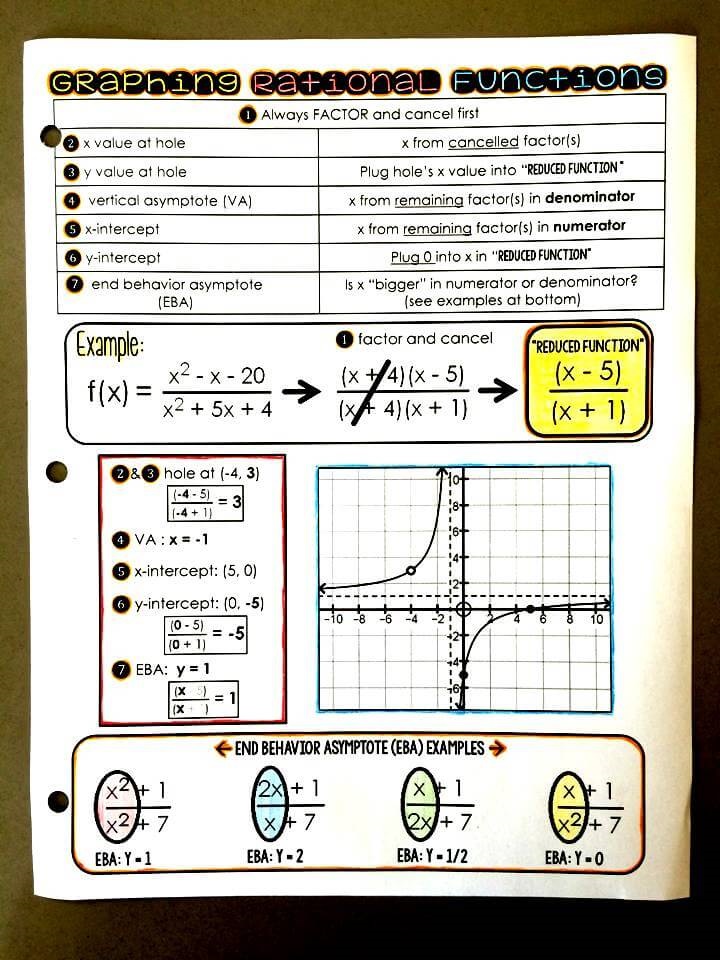 Graphing Rational Functions
1 Always FACTOR and cancel first
2 x value at hole
x from cancelled factor(s)
3 y value at hole
Plug hole's x value into "REDUCED FUNCTION"
4 vertical asymptote (VA)
x from remaining factor(s) in denominator
5 x-intercept
x from remaining factor(s) in numerator
6 y-intercept
Plug 0 into x in "REDUCED FUNCTION"
7 end behavior asymptote
(EBA)
Is x "bigger" in numerator or denominator?
(see examples at bottom)
Example:
1 factor and cancel
"REDUCED FUNCTION"
f(x) =
x² - x - 20
x² + 5x + 4
(x + 4)(x - 5)
(x + 4)(x + 1)
(x - 5)
(x + 1)
2 & 3 hole at (-4, 3)
(-4 - 5)
(-4 + 1)
= 3
4 VA : x = -1
5 x-intercept: (5, 0)
6 y-intercept: (0, -5)
(0 - 5)
(0 + 1)
= -5
7 EBA: y = 1
(x 5)
(x + )
= 1
10
8
6
4
2
0
-10 -8 -6 -4 -2 2 4 6 8 10
-2
-4
-6
END BEHAVIOR ASYMPTOTE (EBA) EXAMPLES
x² + 1
x² + 7
EBA: Y = 1
2x + 1
x + 7
EBA: Y = 2
x + 1
2x + 7
EBA: Y = 1/2
x + 1
x² + 7
EBA: Y = 0